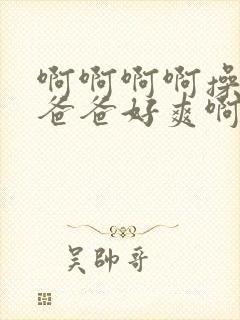 啊啊啊啊操
爸爸好爽啊
吴帅哥